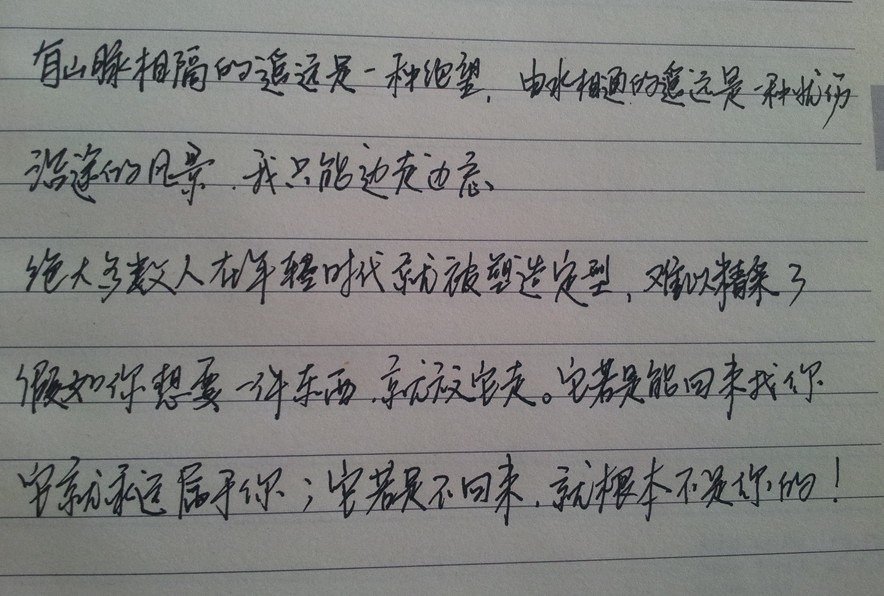 有山脉相隔的遥远是一种绝望，由水相通的遥远是一种忧伤
沿途的风景，我只能边走边忘、
绝大多数人在年轻时代就被塑造定型，难以精彩了
假如你想要一件东西，就放它走。它若是能回来找你
它就永远属于你；它若是不回来，就根本不是你的！